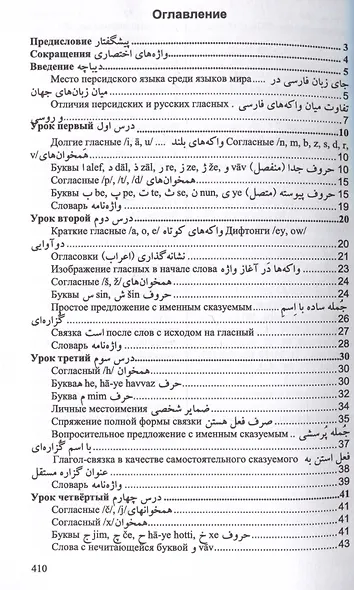 Оглавление
Предисловие پیشگفتار 3
Сокращения واژه‌های اختصاری 4
Введение دیباچه 5
Место персидского языка среди языков мира جای زبان فارسی در
میان زبان‌های جهان 5
Отличия персидских и русских гласных تفاوت میان واکه‌های فارسی
و روسی 7
Урок первый درس اول 10
Долгие гласные /i, ā, u/ واکه‌های بلند Согласные /n, m, b, z, s, d, r,
v/ همخوان‌های 10
Буквы ا alef, د dāl, ذ zāl, ر re, ز ze, ژ že, و vāv حروف جدا (منفصل) 10
Согласные /p, /t, /d/ همخوان‌های 15
Буквы ب be, پ pe, ت te, ث se, ن nun, ی ye حروف پیوسته (متصل) 15
Словарь واژه‌نامه 19
Урок второй درس دوم 20
Краткие гласные /a, o, e/ واکه‌های کوتاه Дифтонги /ey, ow/
دوآوایی 20
Огласовки نشانه‌گذاری (اعراب) 21
Изображение гласных в начале слова واکه‌ها در آغاز واژه 23
Согласные /š, ž/ همخوان‌های 24
Буквы س sin, ش šin حروف 24
Простое предложение с именным сказуемым جمله ساده با اسم
گزاره‌ای 26
Связка است после слов с исходом на гласный 27
Словарь واژه‌نامه 28
Урок третий درس سوم 30
Согласный /h/ همخوان 30
Буква ه he, hā-ye havvaz حرف 31
Буква م mim حرف 32
Личные местоимения ضمایر شخصی 34
Спряжение полной формы связки صرف فعل هستن 35
Вопросительное предложение с именным сказуемым جمله پرسشی
با اسم گزاره‌ای 37
Глагол-связка в качестве самостоятельного сказуемого فعل استن به
عنوان گزاره مستقل 38
Словарь واژه‌نامه 39
Урок четвёртый درس چهارم 41
Согласные /č/, /j/ همخوانهای 41
Согласный /x/ همخوان 41
Буквы ج jim, چ če, ح hā-ye hotti, خ xe حروف 41
Слова с нечитающейся буквой و vāv 43
410